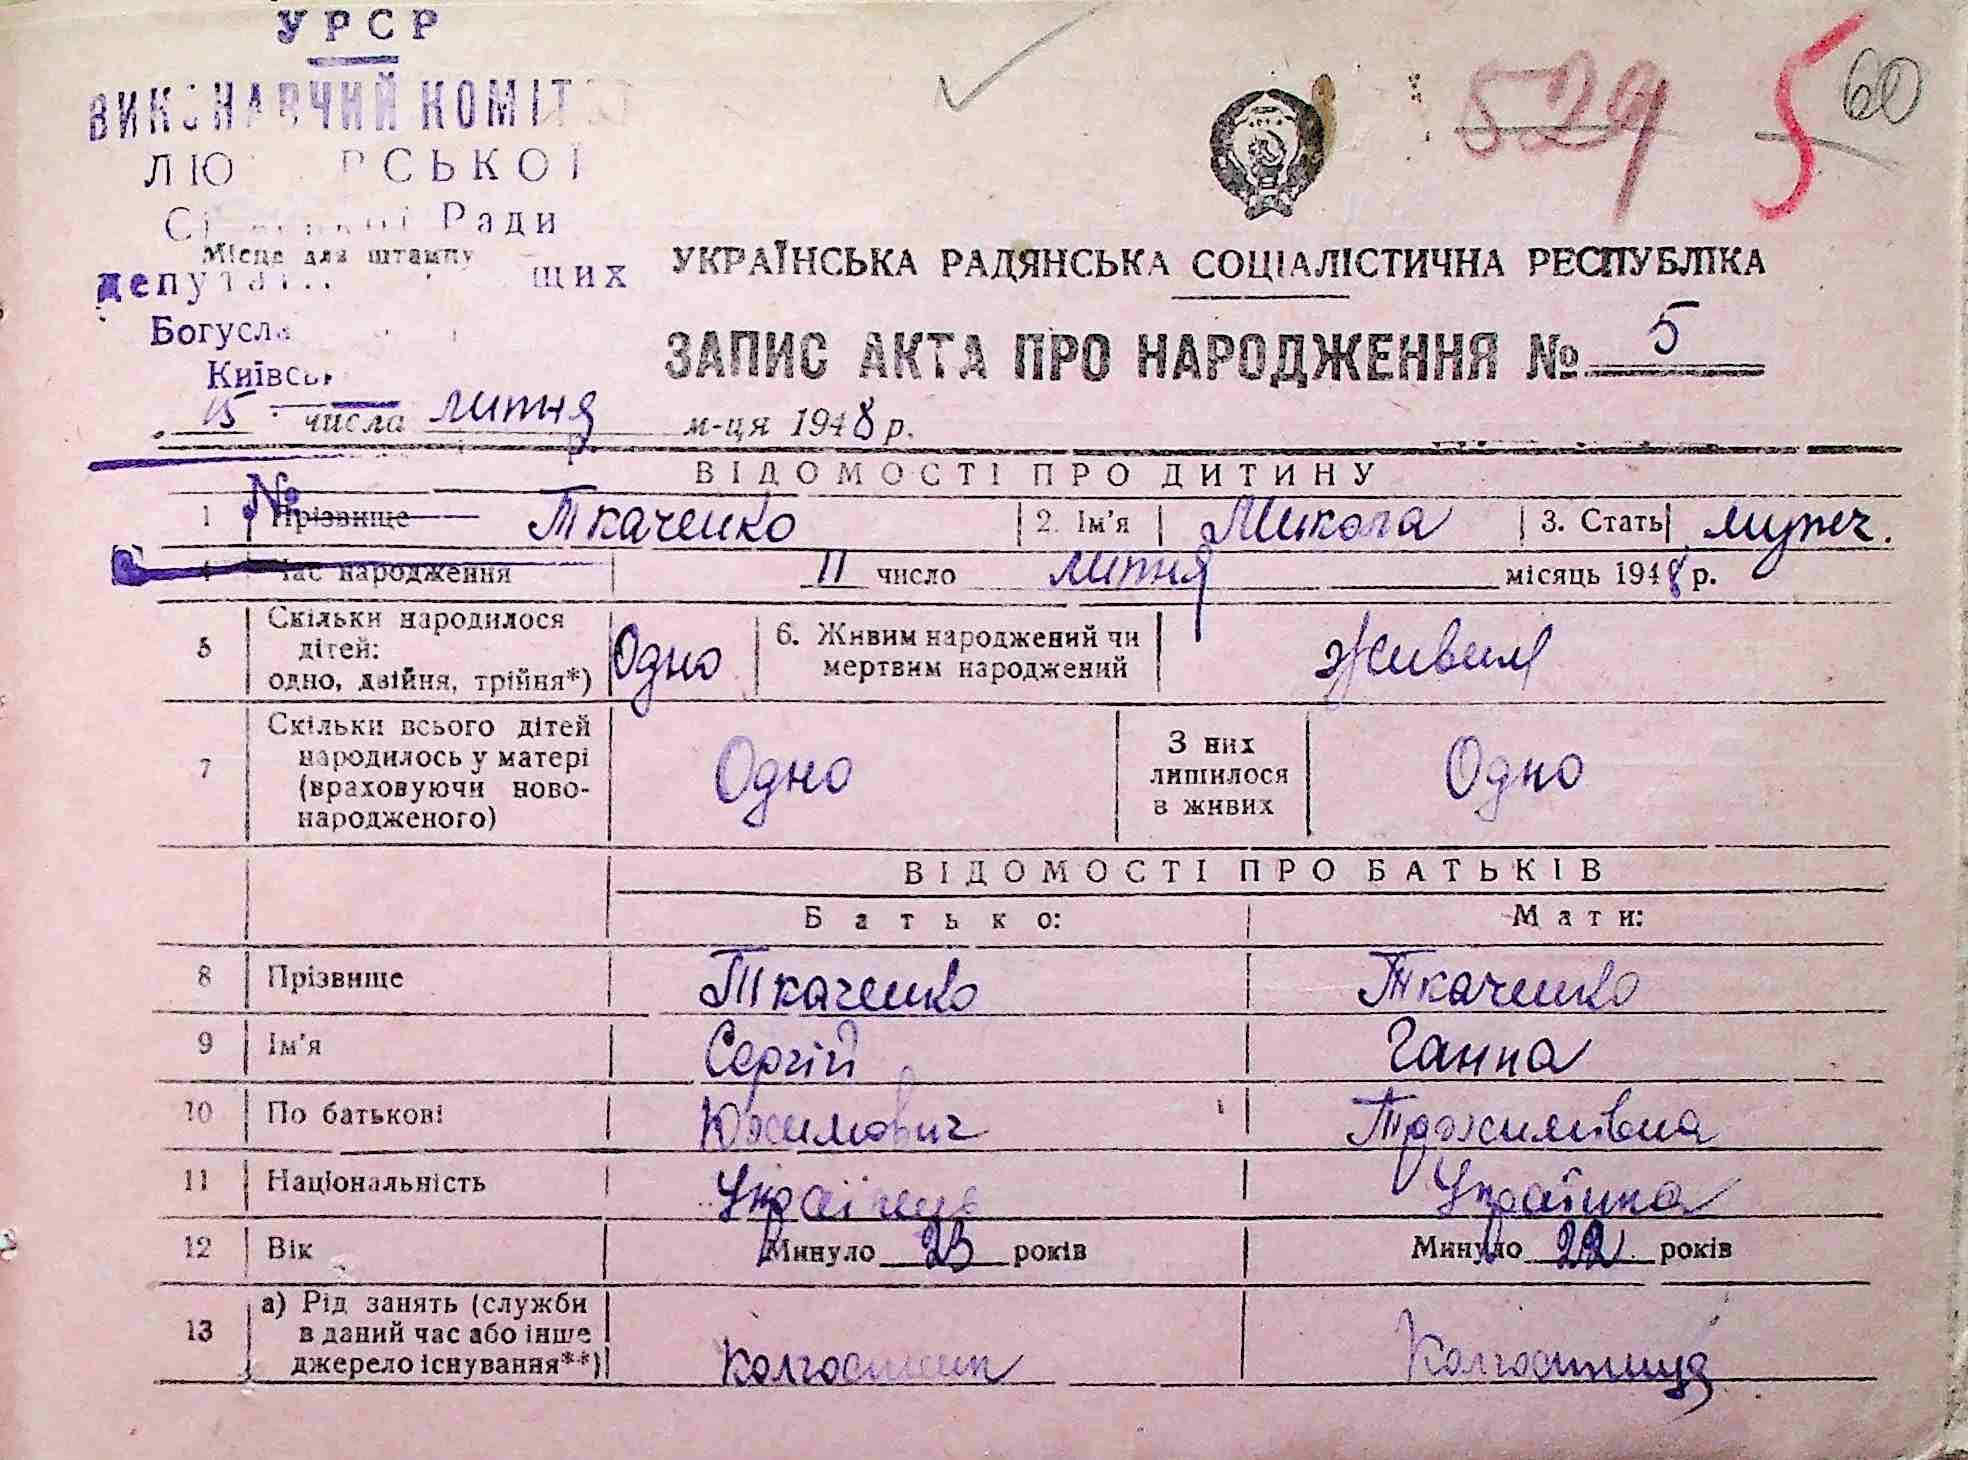 УРСР
529 5 60
ВИКОНАВЧИЙ КОМІТ
ЛЮ РСЬКОЇ
Ради
Місце для штампу
депутат щих
УКРАЇНСЬКА РАДЯНСЬКА СОЦІАЛІСТИЧНА РЕСПУБЛІКА
Богусла
ЗАПИС АКТА ПРО НАРОДЖЕННЯ № 5
Київськ
15 числа липня м-ця 1948 р.
ВІДОМОСТІ ПРО ДИТИНУ
№
1 Прізвище Ткаченко 2. Ім'я Микола 3. Стать мужч.
4 Час народження 11 число липня місяць 1948 р.
5 Скільки народилося дітей: одно, двійня, трійня*) Одно 6. Живим народжений чи мертвим народжений Живим
7 Скільки всього дітей народилось у матері (враховуючи ново-народженого) Одно З них лишилося в живих Одно
ВІДОМОСТІ ПРО БАТЬКІВ
Батько: Мати:
8 Прізвище Ткаченко Ткаченко
9 Ім'я Сергій Ганна
10 По батькові Юхимович
11 Національність Українець Українка
12 Вік Минуло 23 років Минуло 22 років
13 а) Рід занять (служби в даний час або інше джерело існування**) Колгоспник Колгоспниця